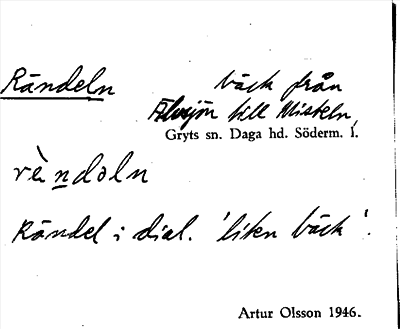 Rändeln bäck från
Älvsjön till Misteln,
Gryts sn. Daga hd. Söderm. l.
rèndəln
Rändel i dial. 'liten bäck'.
Artur Olsson 1946.